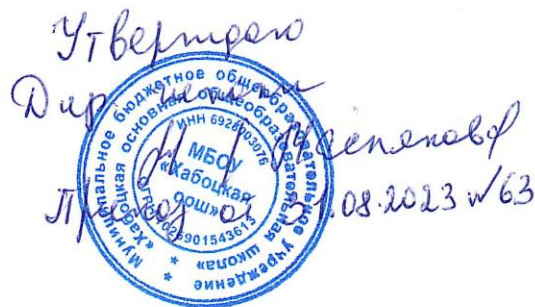 Утверждаю
Дир. школы
Приказ от 31.08.2023 №63
Муниципальное бюджетное общеобразовательное учреждение
«Хабоцкая основная общеобразовательная школа»
ИНН 6926003076
МБОУ
«Хабоцкая
оош»